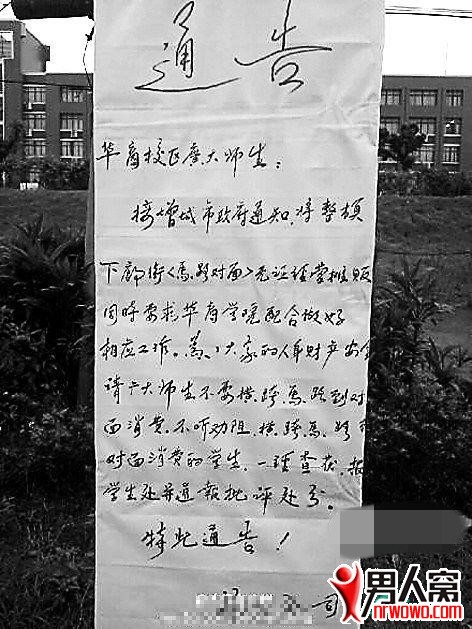 通告
华商校区广大师生：
接增城市政府通知,将整顿
下廊街<马路对面>无证经营摊贩
同时要求华商学院配合做好
相应工作。为了大家的人身财产安全
请广大师生不要横跨马路到对
面消费,不听劝阻,横跨马路
对面消费的学生,一经查获,报
学生处并通报批评处分。
特此通告!
司
男人窝
nrwowo.com